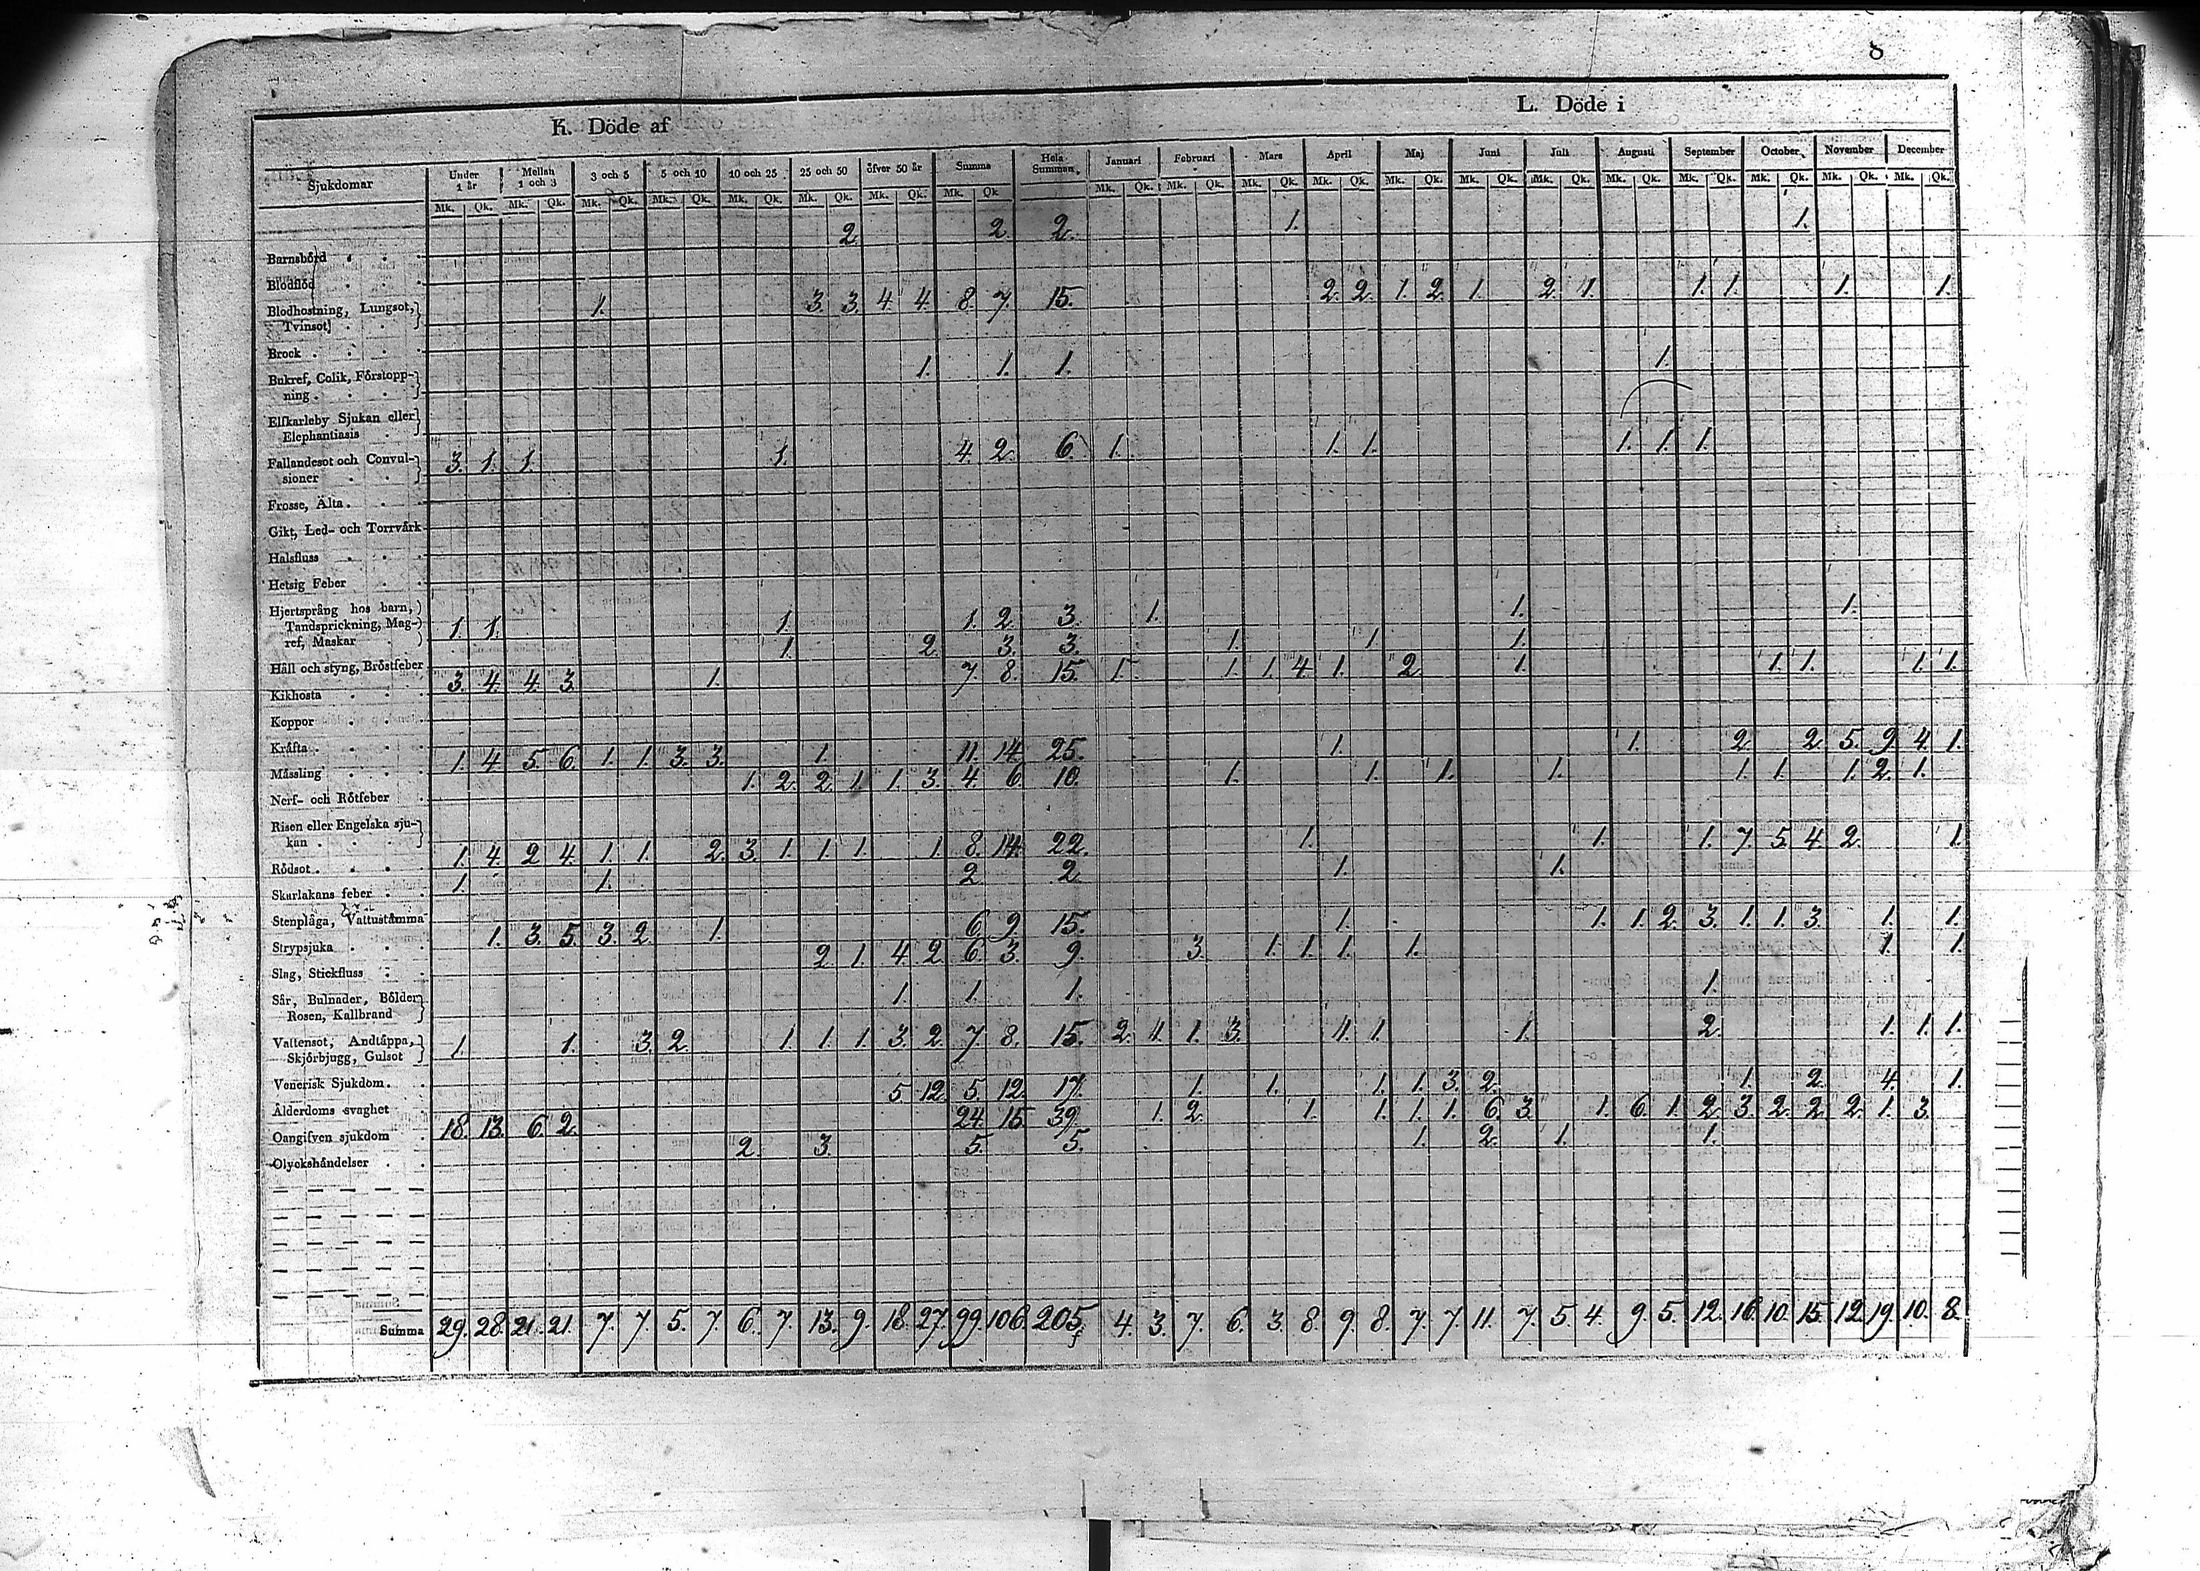 8
K. Döde af L. Döde i
Sjukdomar Under 1 år Mellan 1 och 3 3 och 5 5 och 10 10 och 25 25 och 50 öfver 50 år Summa Hela Summan. Januari Februari Mars April Maj Juni Juli Augusti September October November December
Mk. Qk. Mk. Qk. Mk. Qk. Mk. Qk. Mk. Qk. Mk. Qk. Mk. Qk. Mk. Qk. Mk. Qk. Mk. Qk. Mk. Qk. Mk. Qk. Mk. Qk. Mk. Qk. Mk. Qk. Mk. Qk. Mk. Qk. Mk. Qk. Mk. Qk. Mk. Qk.
Barnsbörd 2. 2. 2. 1. 1.
Blodflöd
Blodhostning, Lungsot,
Tvinsot 1. 3. 3. 4. 4. 8. 7. 15. 2. 2. 1. 2. 1. 2. 1. 1. 1. 1. 1.
Brock
Bukref, Colik, Förstopp-
ning 1. 1. 1. 1.
Elfkarleby Sjukan eller
Elephantiasis
Fallandesot och Convul-
sioner 3. 1. 1. 1. 4. 2. 6. 1. 1. 1. 1. 1. 1.
Frosse, Älta
Gikt, Led- och Torrvärk
Halsfluss
Hetsig Feber
Hjertsprång hos barn,
Tandsprickning, Mag-
ref, Maskar 1. 1. 1. 1. 2. 3. 1. 1. 1.
Håll och styng, Bröstfeber 1. 2. 3. 3. 1. 1. 1.
Kikhosta 3. 4. 4. 3. 1. 7. 8. 15. 1. 1. 1. 4. 1. 2. 1. 1. 1. 1. 1.
Koppor
Kräfta
Mässling 1. 4. 5. 6. 1. 1. 3. 3. 1. 11. 14. 25. 1. 1. 2. 2. 5. 9. 4. 1.
Nerf- och Rötfeber 1. 2. 2. 1. 1. 3. 4. 6. 10. 1. 1. 1. 1. 1. 1. 1. 2. 1.
Risen eller Engelska sju-
kan
Rödsot 1. 4. 2. 4. 1. 1. 2. 3. 1. 1. 1. 1. 8. 14. 22. 1. 1. 1. 7. 5. 4. 2. 1.
Skarlakans feber 1. 1. 2. 2. 1. 1.
Stenplåga, Vattustämma
Strypsjuka 1. 3. 5. 3. 2. 1. 6. 9. 15. 1. 1. 1. 2. 3. 1. 1. 3. 1. 1.
Slag, Stickfluss 2. 1. 4. 2. 6. 3. 9. 3. 1. 1. 1. 1. 1. 1.
Sår, Bulnader, Bölder
Rosen, Kallbrand 1. 1. 1. 1.
Vattensot, Andtäppa,
Skjörbjugg, Gulsot 1. 1. 3. 2. 1. 1. 1. 3. 2. 7. 8. 15. 2. 4. 1. 3. 4. 1. 1. 2. 1. 1. 1.
Venerisk Sjukdom
Ålderdoms svaghet 5. 12. 5. 12. 17. 1. 1. 1. 1. 3. 2. 1. 2. 4. 1.
Oangifven sjukdom 18. 13. 6. 2. 24. 15. 39. 1. 2. 1. 1. 1. 1. 6. 3. 1. 6. 1. 2. 3. 2. 2. 2. 1. 3.
Olyckshändelser 2. 3. 5. 5. 1. 2. 1. 1.
Summa 29. 28. 21. 21. 7. 7. 5. 7. 6. 7. 13. 9. 18. 27. 99. 106. 205. 4. 3. 7. 6. 3. 8. 9. 8. 7. 7. 11. 7. 5. 4. 9. 5. 12. 16. 10. 15. 12. 19. 10. 8.